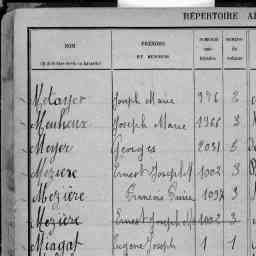 RÉPERTOIRE
NOM PRÉNOMS
Metayer Joseph Marie 996 2
Meuheux Joseph Marie 1366 3
Meyer Georges 2031 5
Mezière Ernest Joseph M 1002 3
Mezière Francois 1037 3
Mezière Ernest Joseph M 1002 3
Miagat Eugene Joseph 1 1